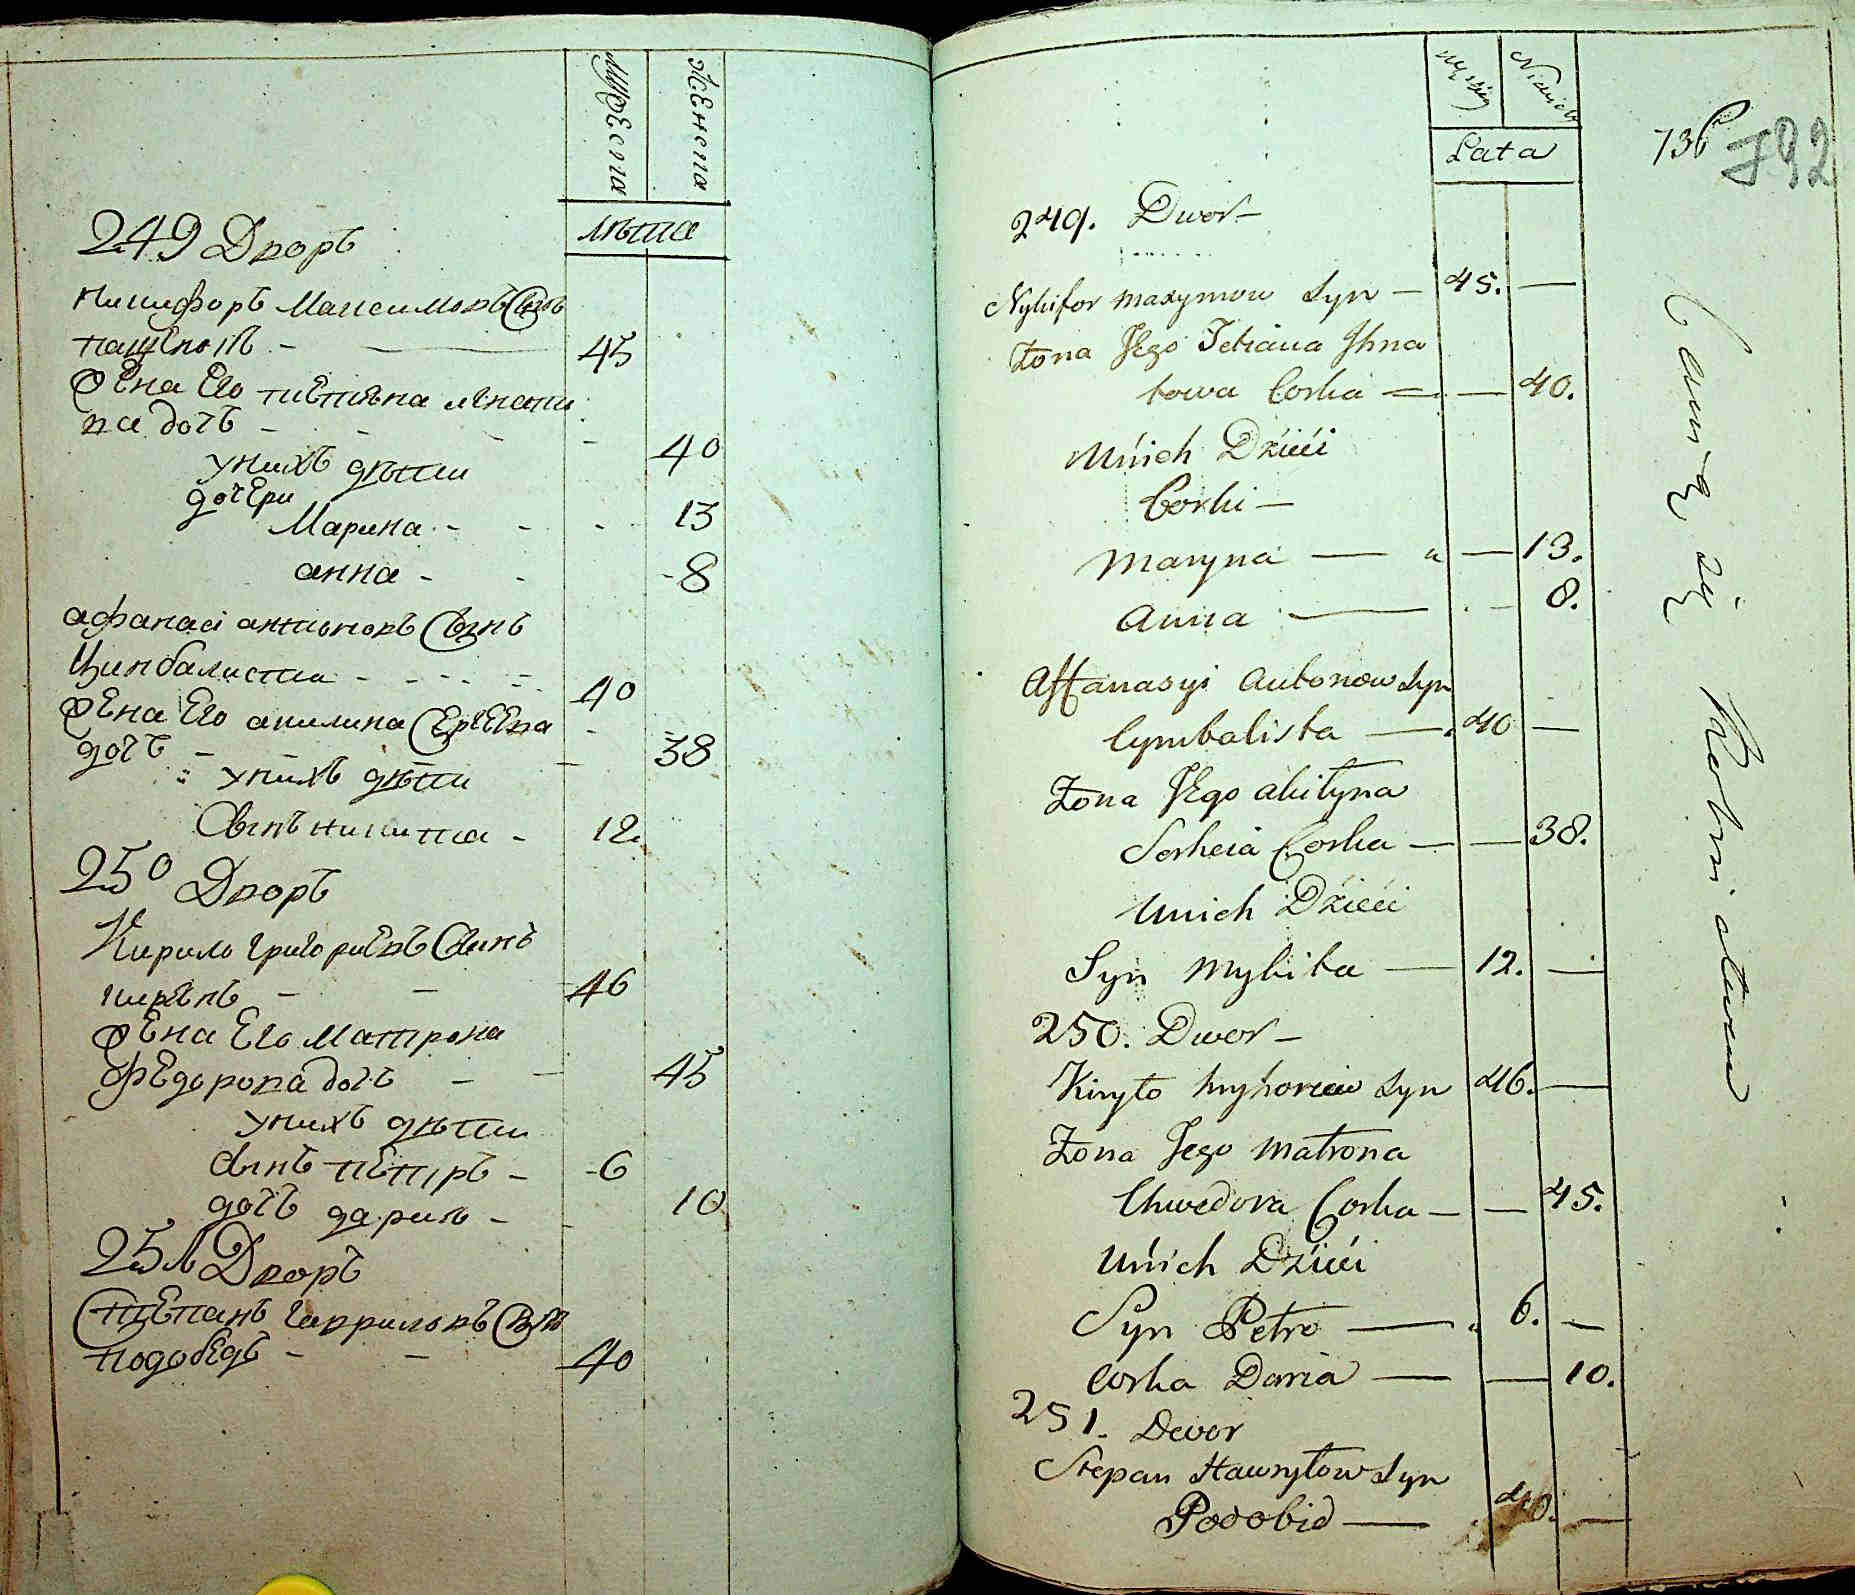 мужеска
женска
лѣта
249 Дворъ
Никифоръ Максимовъ Сынъ
45
жена Его тиетияна
на дочъ - - - - 40
унихъ дѣти
дочери
Марина - - - 13
анна - - - 8
афанасі антоновъ Сынъ
Цинбалиста - - - - 40
жена Его акилина Сергеева
дочъ - - - 38
унихъ дѣти
Сынъ никита - 12
250 Дворъ
Кирило григориевъ Сынъ
- - 46
жена Его Матрона
федорова дочъ - - 45
унихъ дѣти
Сынъ петръ - 6
дочъ дария - - 10
251 Дворъ
Степанъ гавриловъ Сынъ
подобедъ - - 40
Lata
736
792
249. Dwor
Nykifor Maxymow Syn — 45. —
Żona Jego Tetiana Ihna
towa Corka — — 40.
Unich Dzieci
Corki —
Maryna — — 13.
Anna — — 8.
Affanasyi Antonow Syn
Cymbalista — 40 —
Żona Jego Akilyna
Serheia Corka — — 38.
Unich Dzieci
Syn Mykita — 12. —
250. Dwor —
Kiryło Hryhoriew Syn 46. —
Żona Jego Matrona
Chwedora Corka — — 45.
Unich Dzieci
Syn Petro — 6. —
Corka Daria — — 10.
251. Dwor
Stepan Hawryłow Syn
Podobid — 40. —